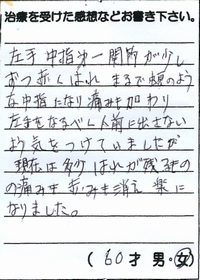 治療を受けた感想などお書き下さい。
左手中指第一関節が少し
ずつ赤くはれ まるで虫のよう
な中指になり痛みも加わり
左手をなるべく人前に出さない
よう気をつけていましたが
現在は多少はれが残るものの
痛みも赤みも消え楽に
なりました。
(60才 男・女)